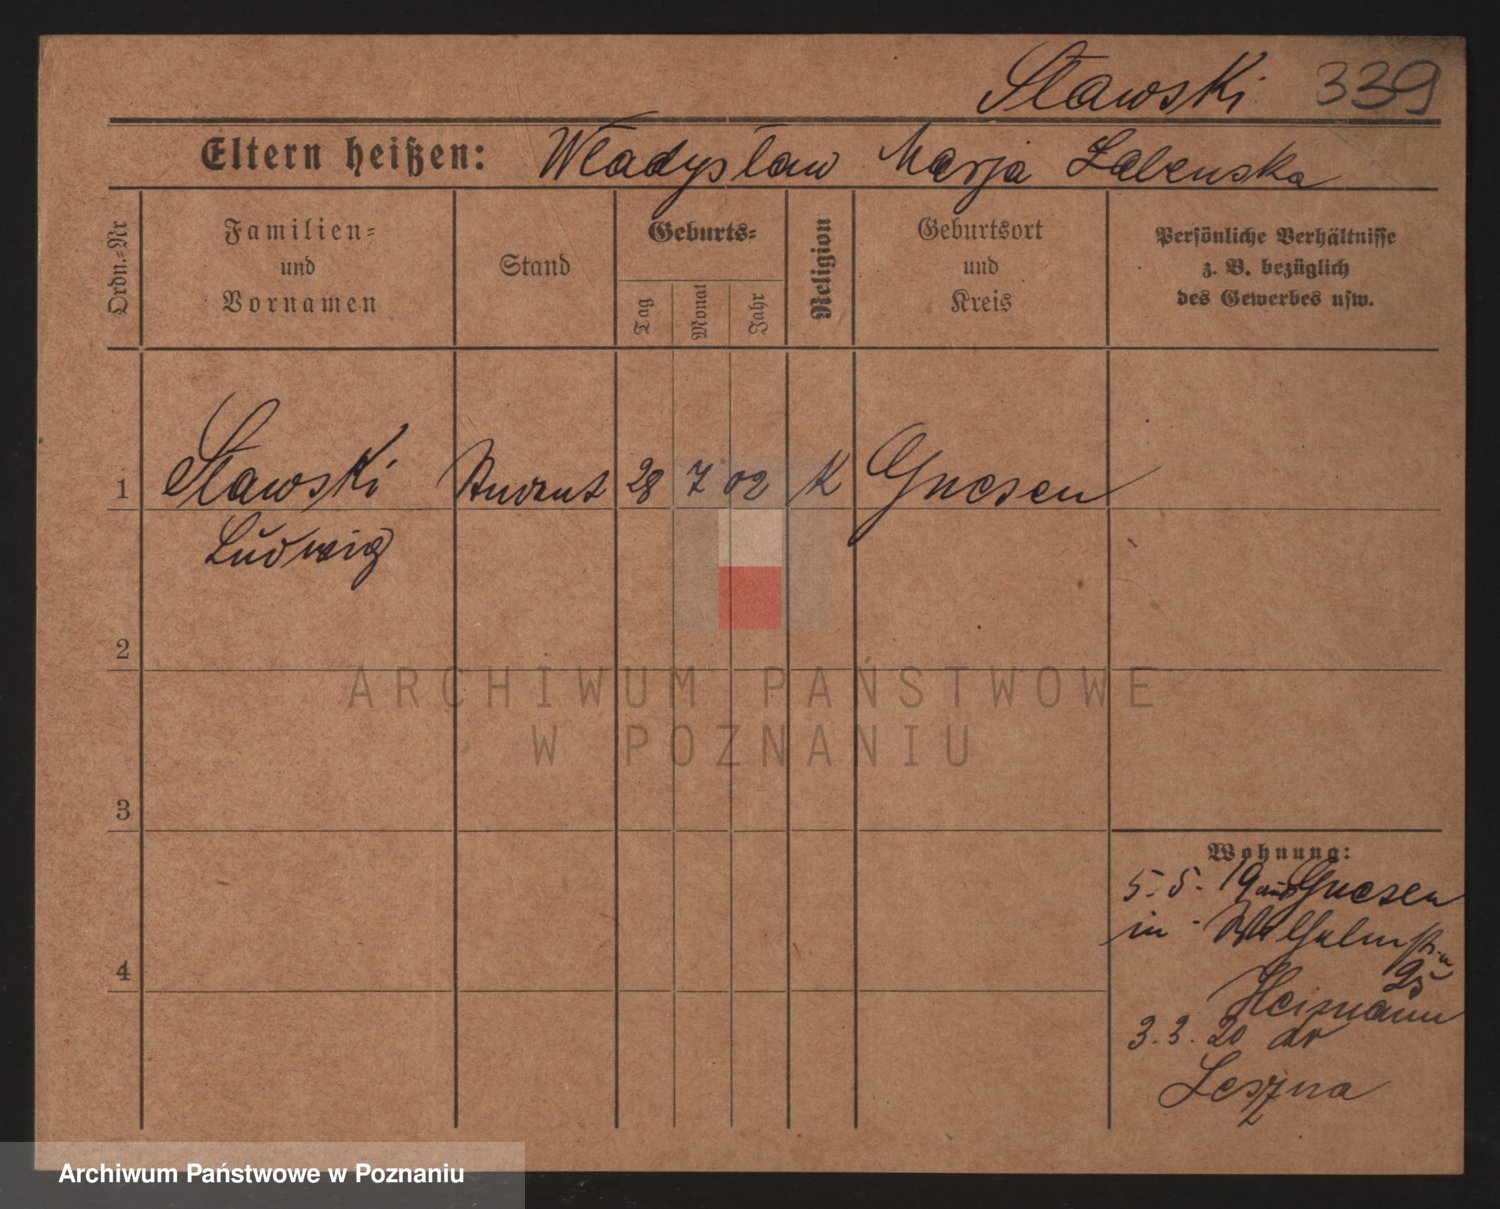 Sławski 339
Eltern heißen: Władysław Marja Zalenska
Ordn.-Nr
Familien-
und
Vornamen
Stand
Geburts-
Tag
Monat
Jahr
Religion
Geburtsort
und
Kreis
Persönliche Verhältnisse
z. B. bezüglich
des Gewerbes usw.
1 Sławski Student 28 7 02 K Gnesen
Ludwig
2
3
4
Wohnung:
5. 5. 19 aus Gnesen
in Wilhelmstr.
25
Heimann
3. 3. 20 do
Leszna
ARCHIWUM PAŃSTWOWE
W POZNANIU
Archiwum Państwowe w Poznaniu